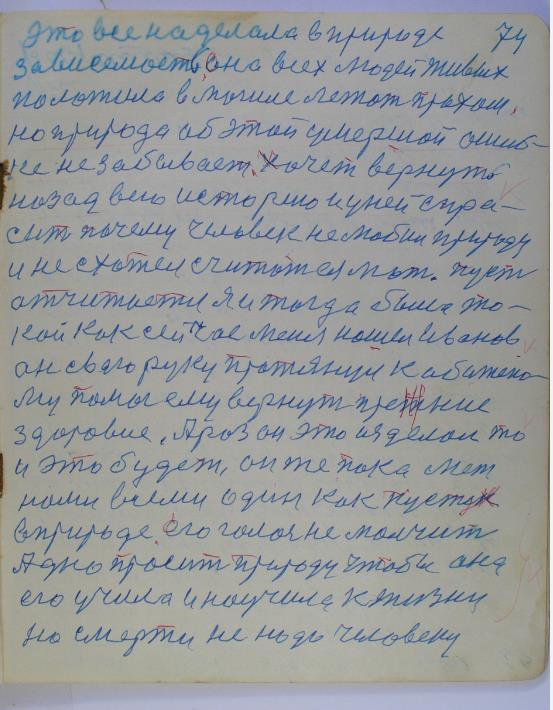 Это все наделала в природе 74
зависемость, она всех людей живых
положила в могиле лежат прахом.
но природа об этой умершой ошиб-
ке не забывает. Хочет вернуть
назад всю историю и у ней спра-
сит почему человек не любил природу
и не схотел считатся
Я и тогда была та-
кой как сейчас меня нашел Иванов
он сваю руку протянул к
му помог ему вернут
здоровие. А раз он это изделал то
и это будет, он же пока меж
нами всеми один как
в природе. его голос не молчит
Адно просит природу чтобы она
его учила и научила к жизни
но смерти не надо человеку